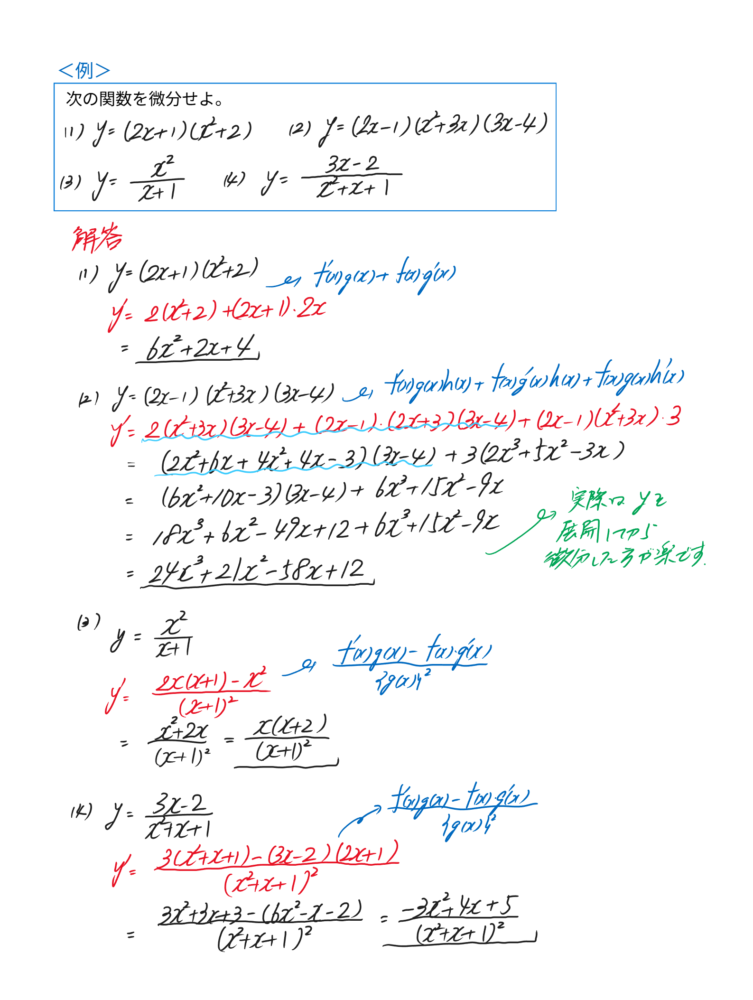 ＜例＞
次の関数を微分せよ。
(1) y=(2x+1)(x²+2) (2) y=(2x-1)(x²+3x)(3x-4)
(3) y= x²/(x+1) (4) y= (3x-2)/(x²+x+1)
解答
(1) y=(2x+1)(x²+2) → f'(x)g(x)+f(x)g'(x)
y'= 2(x²+2)+(2x+1)·2x
= 6x²+2x+4
(2) y=(2x-1)(x²+3x)(3x-4) → f'(x)g(x)h(x)+f(x)g'(x)h(x)+f(x)g(x)h'(x)
y'= 2(x²+3x)(3x-4)+(2x-1)·(2x+3)(3x-4)+(2x-1)(x²+3x)·3
= (2x²+6x+4x²+4x-3)(3x-4)+3(2x³+5x²-3x)
= (6x²+10x-3)(3x-4)+6x³+15x²-9x
= 18x³+6x²-49x+12+6x³+15x²-9x
= 24x³+21x²-58x+12
→ 実際は yを
展開してから
微分した方が楽です.
(3) y= x²/(x+1)
y'= (2x(x+1)-x²)/(x+1)² → (f'(x)g(x)-f(x)g'(x))/{g(x)}²
= (x²+2x)/(x+1)² = x(x+2)/(x+1)²
(4) y= (3x-2)/(x²+x+1) → (f'(x)g(x)-f(x)g'(x))/{g(x)}²
y'= (3(x²+x+1)-(3x-2)(2x+1))/(x²+x+1)²
= (3x²+3x+3-(6x²-x-2))/(x²+x+1)² = (-3x²+4x+5)/(x²+x+1)²